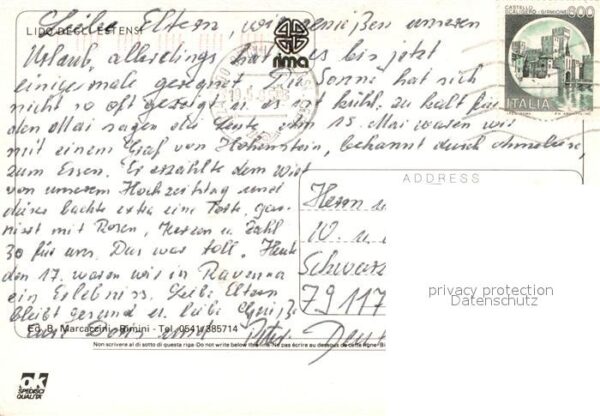 LIDO DEGLI ESTENSI
rima
CASTELLO
SCALIGERO - SIRMIONE
800
ITALIA
Liebe Eltern, wir genießen unseren
Urlaub, allerdings hat es bis jetzt
einigemale geregnet. Die Sonne hat sich
nicht so oft gezeigt u. es ist kühl, zu kalt für
den Mai sagen die Leute. Am 15. Mai waren wir
mit einem Graf von Hohenstein, bekannt durch
zum Essen. Er erzählte dem Wirt
von unserem Hochzeitstag und
dieser backte extra eine Torte, gar-
niert mit Rosen, Herzen u. Zahl
30 für uns. Das war toll. Heute
den 17. waren wir in Ravenna
ein Erlebniss. Liebe Eltern
bleibt gesund u. liebe Grüße
Eure Doris und Peter
ADDRESS
Herrn u
W u
Schwarz
79117
Deut
privacy protection
Datenschutz
Ed. B. Marcaccini - Rimini - Tel. 0541/385714
Non scrivere al di sotto di questa riga - Do not write below this line - Ne pas écrire au dessous de cette ligne - Bi
OK
SPEDISCI
QUALITÀ